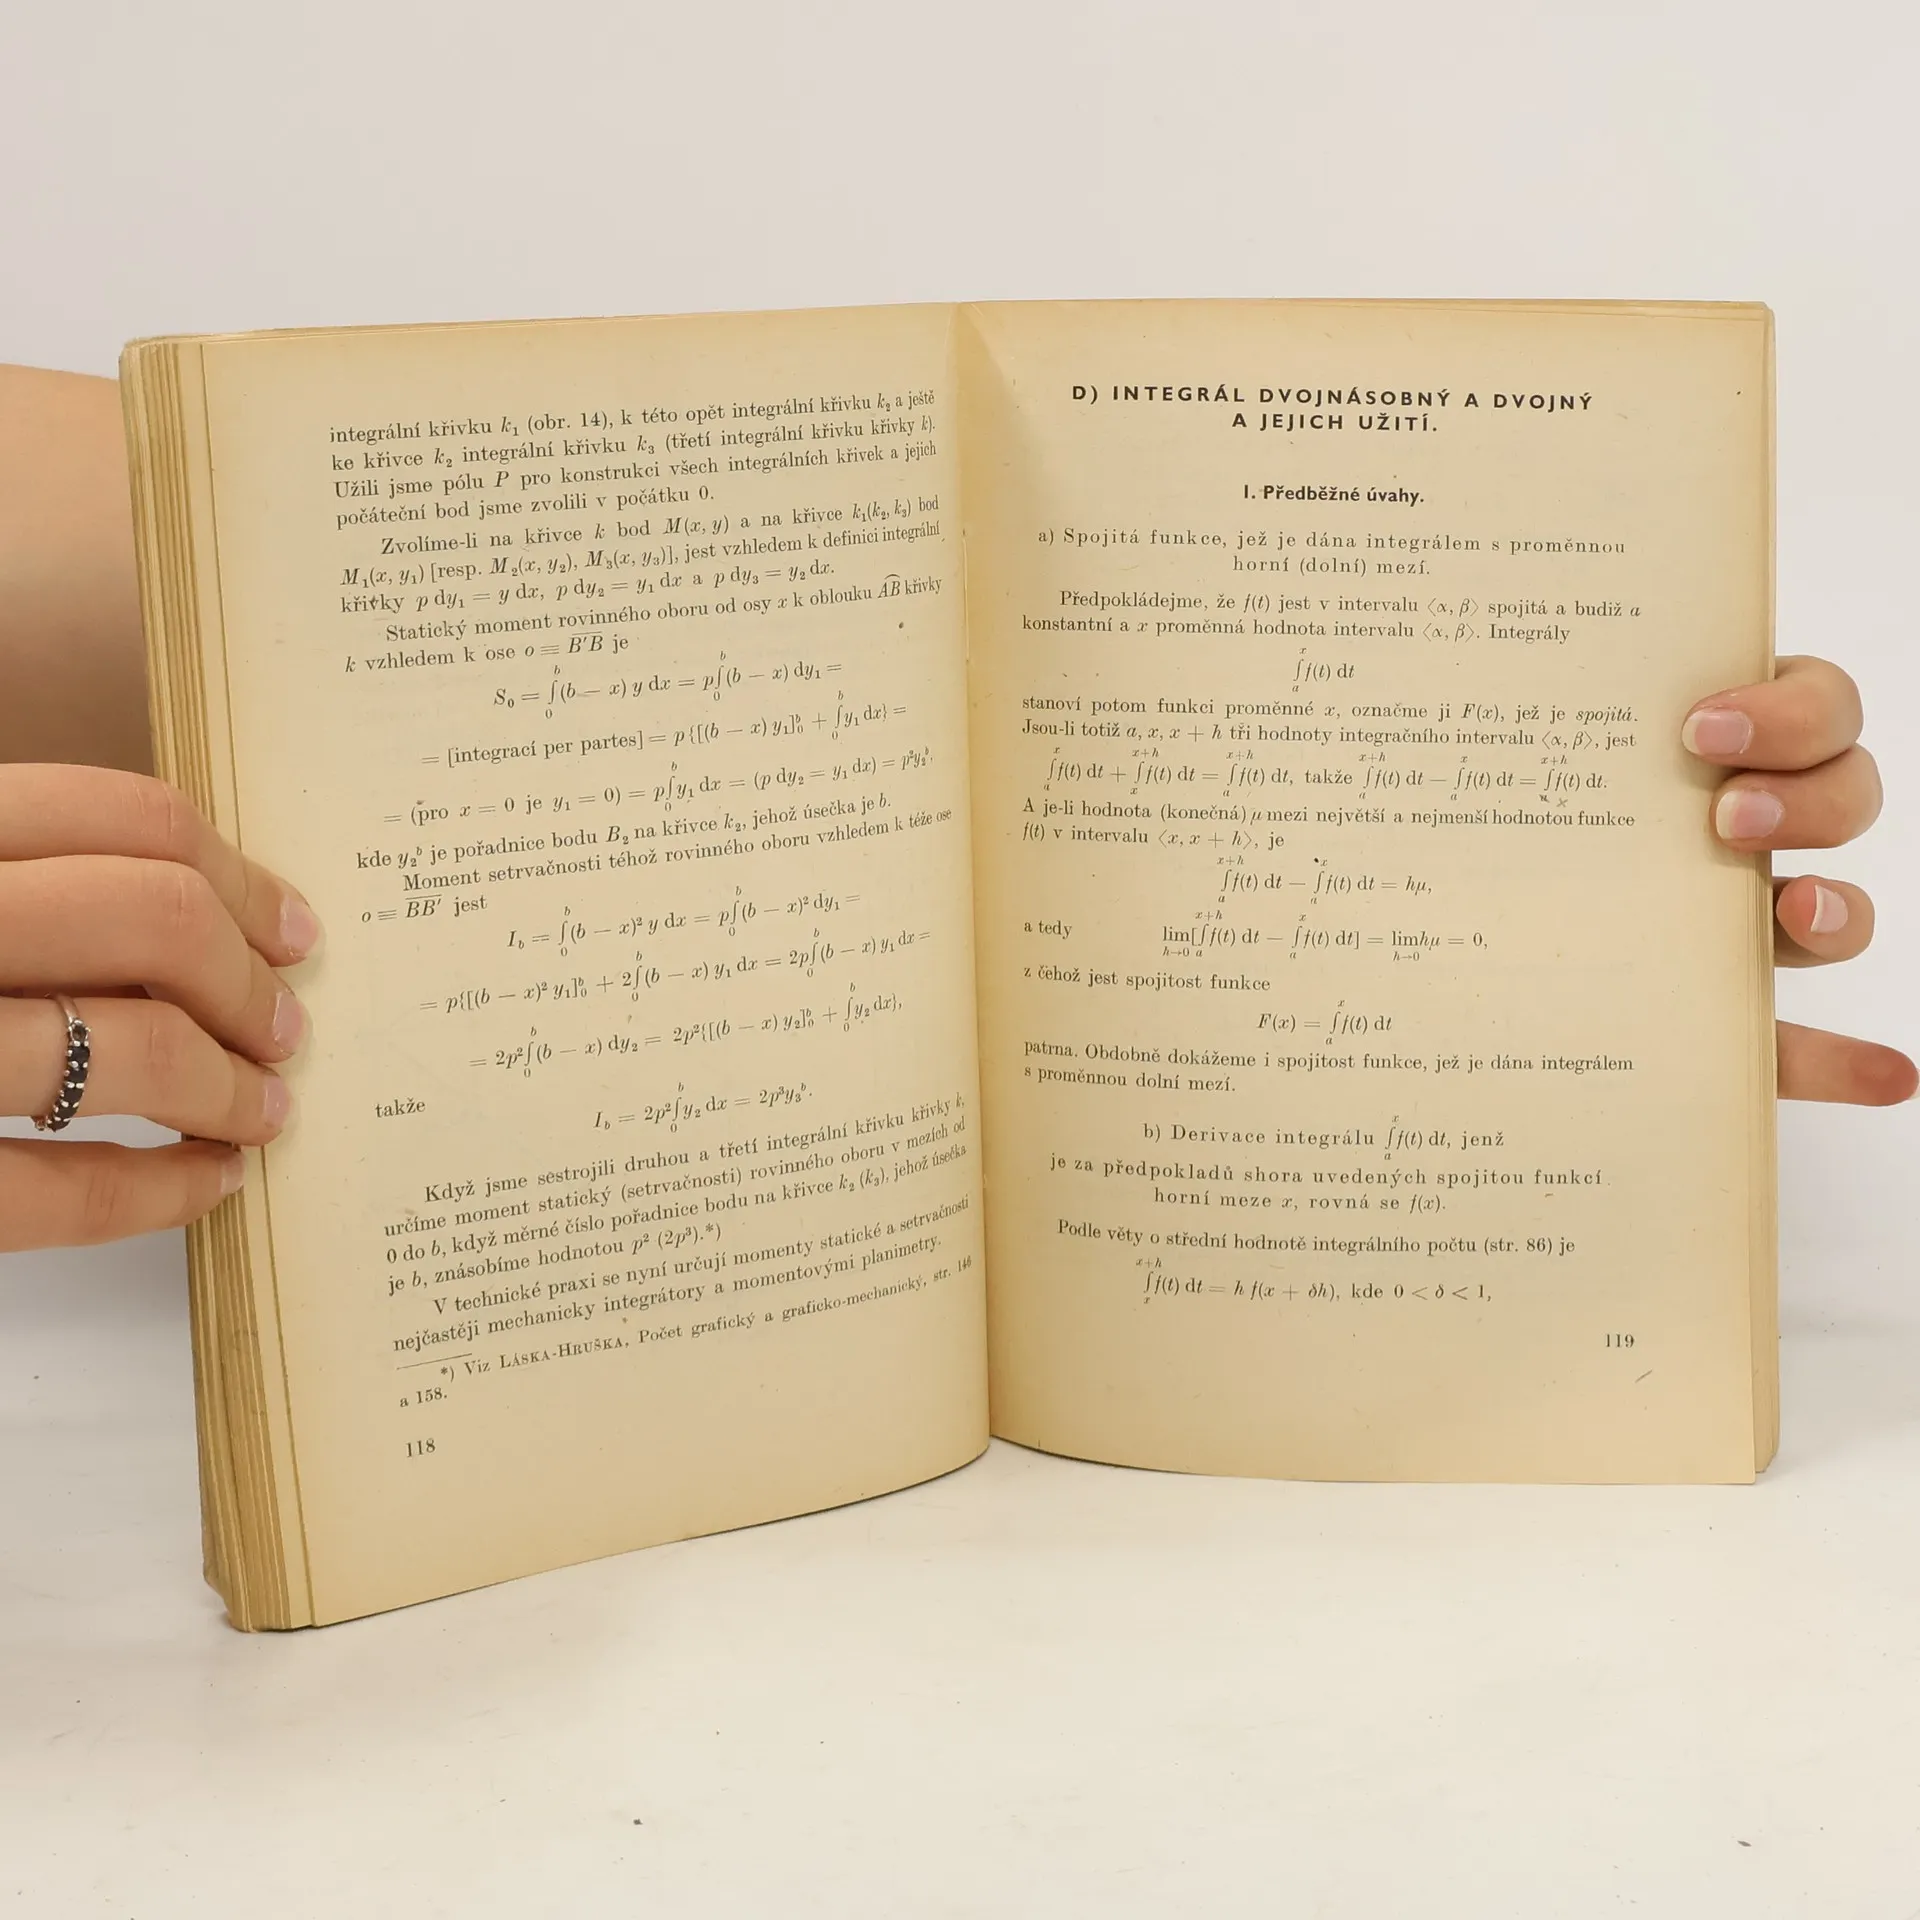 integrální křivku k₁ (obr. 14), k této opět integrální křivku k₂ a ještě
ke křivce k₂ integrální křivku k₃ (třetí integrální křivku křivky k).
Užili jsme pólu P pro konstrukci všech integrálních křivek a jejich
počáteční bod jsme zvolili v počátku 0.
Zvolíme-li na křivce k bod M(x, y) a na křivce k₁(k₂, k₃) bod
M₁(x, y₁) [resp. M₂(x, y₂), M₃(x, y₃)], jest vzhledem k definici integrální
křivky p dy₁ = y dx, p dy₂ = y₁ dx a p dy₃ = y₂ dx.
Statický moment rovinného oboru od osy x k oblouku A͡B křivky
k vzhledem k ose o ≡ B′B je
S₀ = ∫₀ᵇ(b − x) y dx = p∫₀ᵇ(b − x) dy₁ =
= [integrací per partes] = p{[(b − x) y₁]₀ᵇ + ∫₀ᵇy₁ dx} =
= (pro x = 0 je y₁ = 0) = p∫₀ᵇy₁ dx = (p dy₂ = y₁ dx) = p²y₂ᵇ,
kde y₂ᵇ je pořadnice bodu B₂ na křivce k₂, jehož úsečka je b.
Moment setrvačnosti téhož rovinného oboru vzhledem k téže ose
o ≡ BB′ jest
I_b = ∫₀ᵇ(b − x)² y dx = p∫₀ᵇ(b − x)² dy₁ =
= p{[(b − x)² y₁]₀ᵇ + 2∫₀ᵇ(b − x) y₁ dx = 2p∫₀ᵇ(b − x) y₁ dx =
= 2p²∫₀ᵇ(b − x) dy₂ = 2p²{[(b − x) y₂]₀ᵇ + ∫₀ᵇy₂ dx},
takže
I_b = 2p²∫₀ᵇy₂ dx = 2p³y₃ᵇ.
Když jsme sestrojili druhou a třetí integrální křivku křivky k,
určíme moment statický (setrvačnosti) rovinného oboru v mezích od
0 do b, když měrné číslo pořadnice bodu na křivce k₂ (k₃), jehož úsečka
je b, znásobíme hodnotou p² (2p³).*)
V technické praxi se nyní určují momenty statické a setrvačnosti
nejčastěji mechanicky integrátory a momentovými planimetry.
*) Viz LÁSKA-HRUŠKA, Počet grafický a graficko-mechanický, str. 146
a 158.
118
D) INTEGRÁL DVOJNÁSOBNÝ A DVOJNÝ
A JEJICH UŽITÍ.
I. Předběžné úvahy.
a) Spojitá funkce, jež je dána integrálem s proměnnou
horní (dolní) mezí.
Předpokládejme, že f(t) jest v intervalu ⟨α, β⟩ spojitá a budiž a
konstantní a x proměnná hodnota intervalu ⟨α, β⟩. Integrály
∫ₐˣf(t) dt
stanoví potom funkci proměnné x, označme ji F(x), jež je spojitá.
Jsou-li totiž a, x, x + h tři hodnoty integračního intervalu ⟨α, β⟩, jest
∫ₐˣf(t) dt + ∫ₓˣ⁺ʰf(t) dt = ∫ₐˣ⁺ʰf(t) dt, takže ∫ₐˣ⁺ʰf(t) dt − ∫ₐˣf(t) dt = ∫ₓˣ⁺ʰf(t) dt.
A je-li hodnota (konečná) μ mezi největší a nejmenší hodnotou funkce
f(t) v intervalu ⟨x, x + h⟩, je
∫ₐˣ⁺ʰf(t) dt − ∫ₐˣf(t) dt = hμ,
a tedy lim[∫ₐˣ⁺ʰf(t) dt − ∫ₐˣf(t) dt] = limhμ = 0,
h→0 h→0
z čehož jest spojitost funkce
F(x) = ∫ₐˣf(t) dt
patrna. Obdobně dokážeme i spojitost funkce, jež je dána integrálem
s proměnnou dolní mezí.
b) Derivace integrálu ∫ₐˣf(t) dt, jenž
je za předpokladů shora uvedených spojitou funkcí
horní meze x, rovná se f(x).
Podle věty o střední hodnotě integrálního počtu (str. 86) je
∫ₓˣ⁺ʰf(t) dt = h f(x + δh), kde 0 < δ < 1,
119